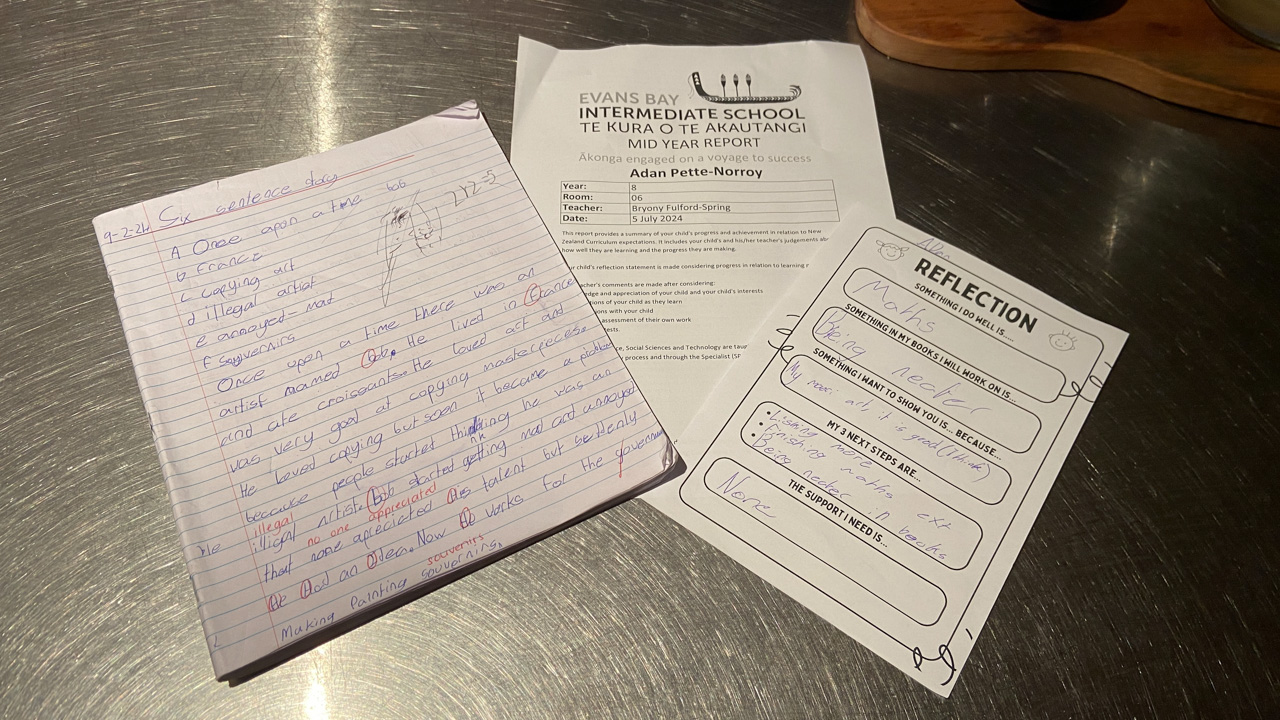 9-2-24 Six sentence story
A Once upon a time bob
b France
c copying art
d illegal artist
e annoyed - mad
f souvernirs
2Y2=5
Once upon a time there was an
artist named bob. He lived in France
and ate croissants. He loved art and
was very good at copying masterpieces.
He loved copying but soon it became a
because people started thinking he was an
illegal
illigal artist. bob started getting mad and annoyed
no one appreciated
that none apreciated his talent but
He had an idea. Now He works for the
souvenirs
Making Painting souvernirs.
EVANS BAY
INTERMEDIATE SCHOOL
TE KURA O TE AKAUTANGI
MID YEAR REPORT
Ākonga engaged on a voyage to success
Adan Pette-Norroy
Year: 8
Room: 06
Teacher: Bryony Fulford-Spring
Date: 5 July 2024
This report provides a summary of your child's progress and achievement in relation to New
Zealand Curriculum expectations. It includes your child's and his/her teacher's judgements
how well they are learning and the progress they are making.
child's reflection statement is made considering progress in relation to learning
comments are made after considering:
and appreciation of your child and your child's interests
of your child as they learn
with your child
assessment of their own work
Social Sciences and Technology are
process and through the Specialist
Adan
REFLECTION
SOMETHING I DO WELL IS.....
Maths
SOMETHING IN MY BOOKS I WILL WORK ON IS...
Being neater
SOMETHING I WANT TO SHOW YOU IS... BECAUSE...
My maori art, it is good (I think)
MY 3 NEXT STEPS ARE...
• Lishing more
• Finishing maths ext
• Being neater in books
THE SUPPORT I NEED IS...
None